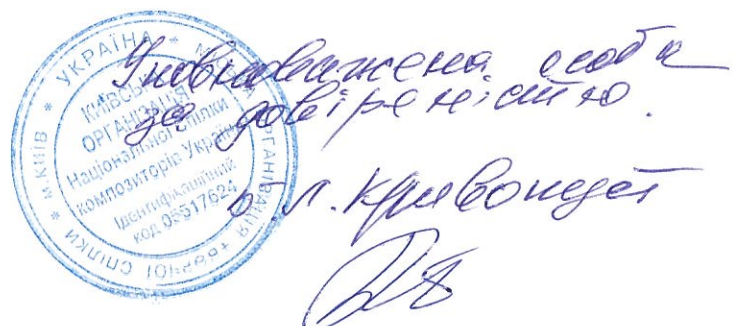 Уповноважена особа
за довіреністю.
* УКРАЇНА * м.КИЇВ *
ОРГАНІЗАЦІЯ ТВОРЧОЇ СПІЛКИ
КИЇВСЬКА
ОРГАНІЗАЦІЯ
Національної спілки
композиторів України
Ідентифікаційний
код 05517624